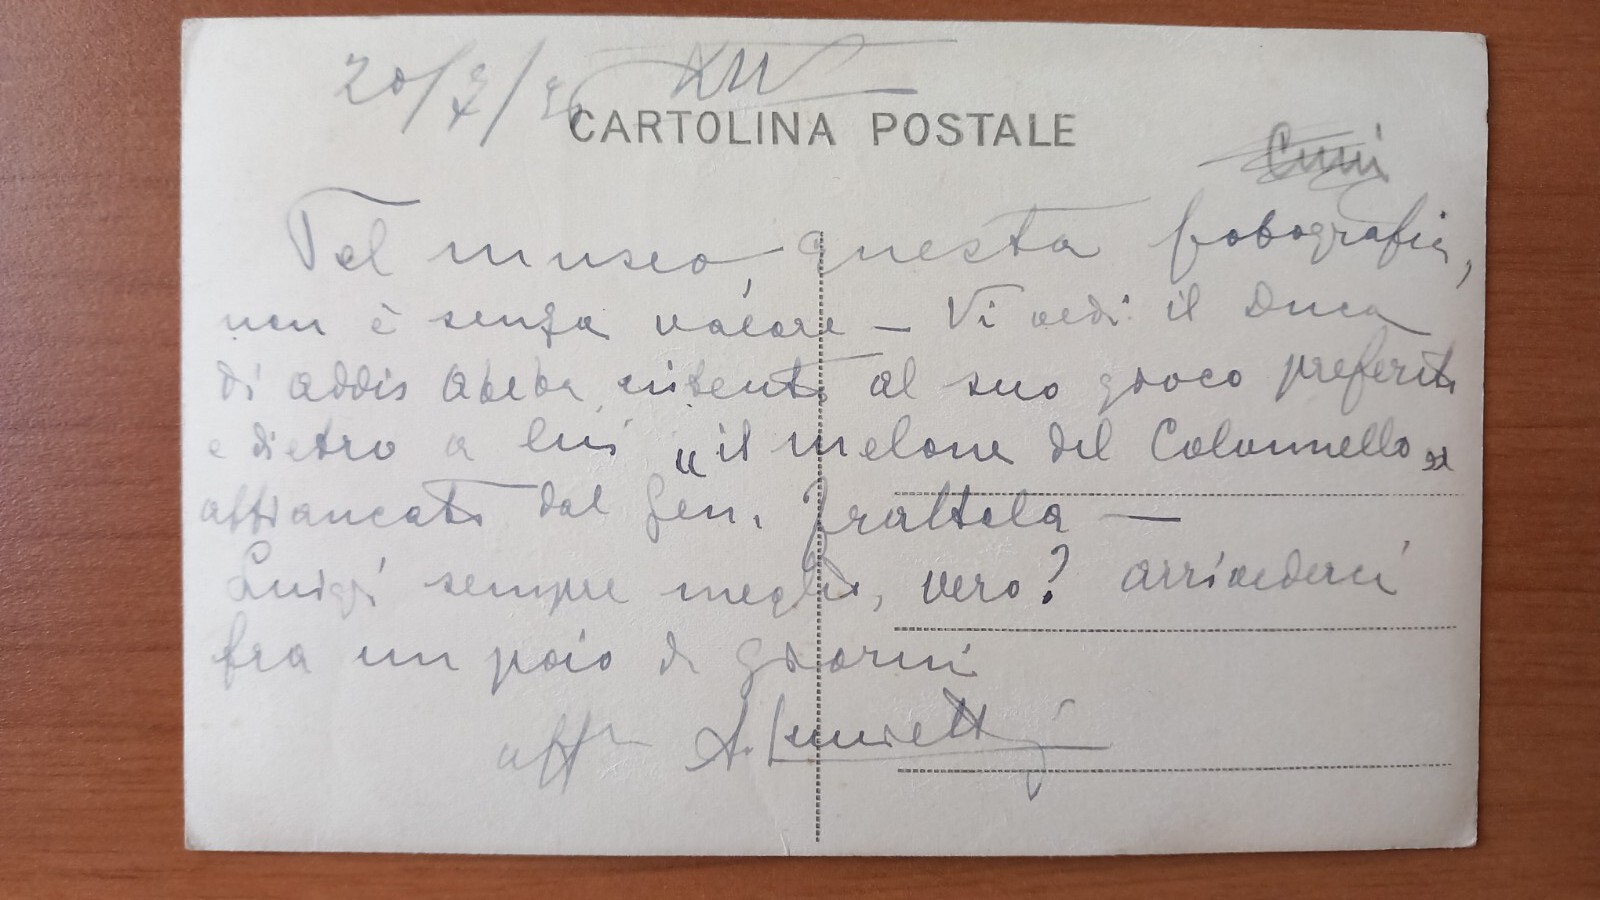 20/7/36 XIV
CARTOLINA POSTALE
Pel museo, questa fotografia,
non è senza valore – Vi vedi il Duca
di Addis Abeba intento al suo gioco preferito
e dietro a lui "il melone del Colonnello"
affiancato dal Gen.
Luigi sempre meglio, vero? arrivederci
fra un paio di giorni
aff